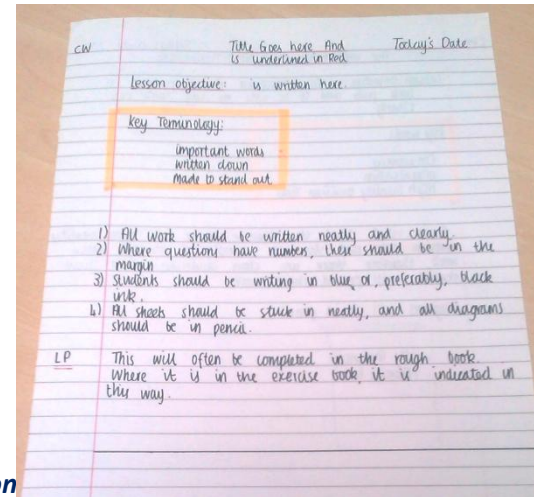 CW Title Goes here And Today's Date
is underlined in Red
Lesson objective: is written here.
Key Terminology:
important words
written down
made to stand out
1) All work should be written neatly and clearly.
2) Where questions have numbers, these should be in the
margin
3) Students should be writing in blue, or, preferably, black
ink.
4) All sheets should be stuck in neatly, and all diagrams
should be in pencil.
LP This will often be completed in the rough book.
Where it is in the exercise book, it is indicated in
this way.
on